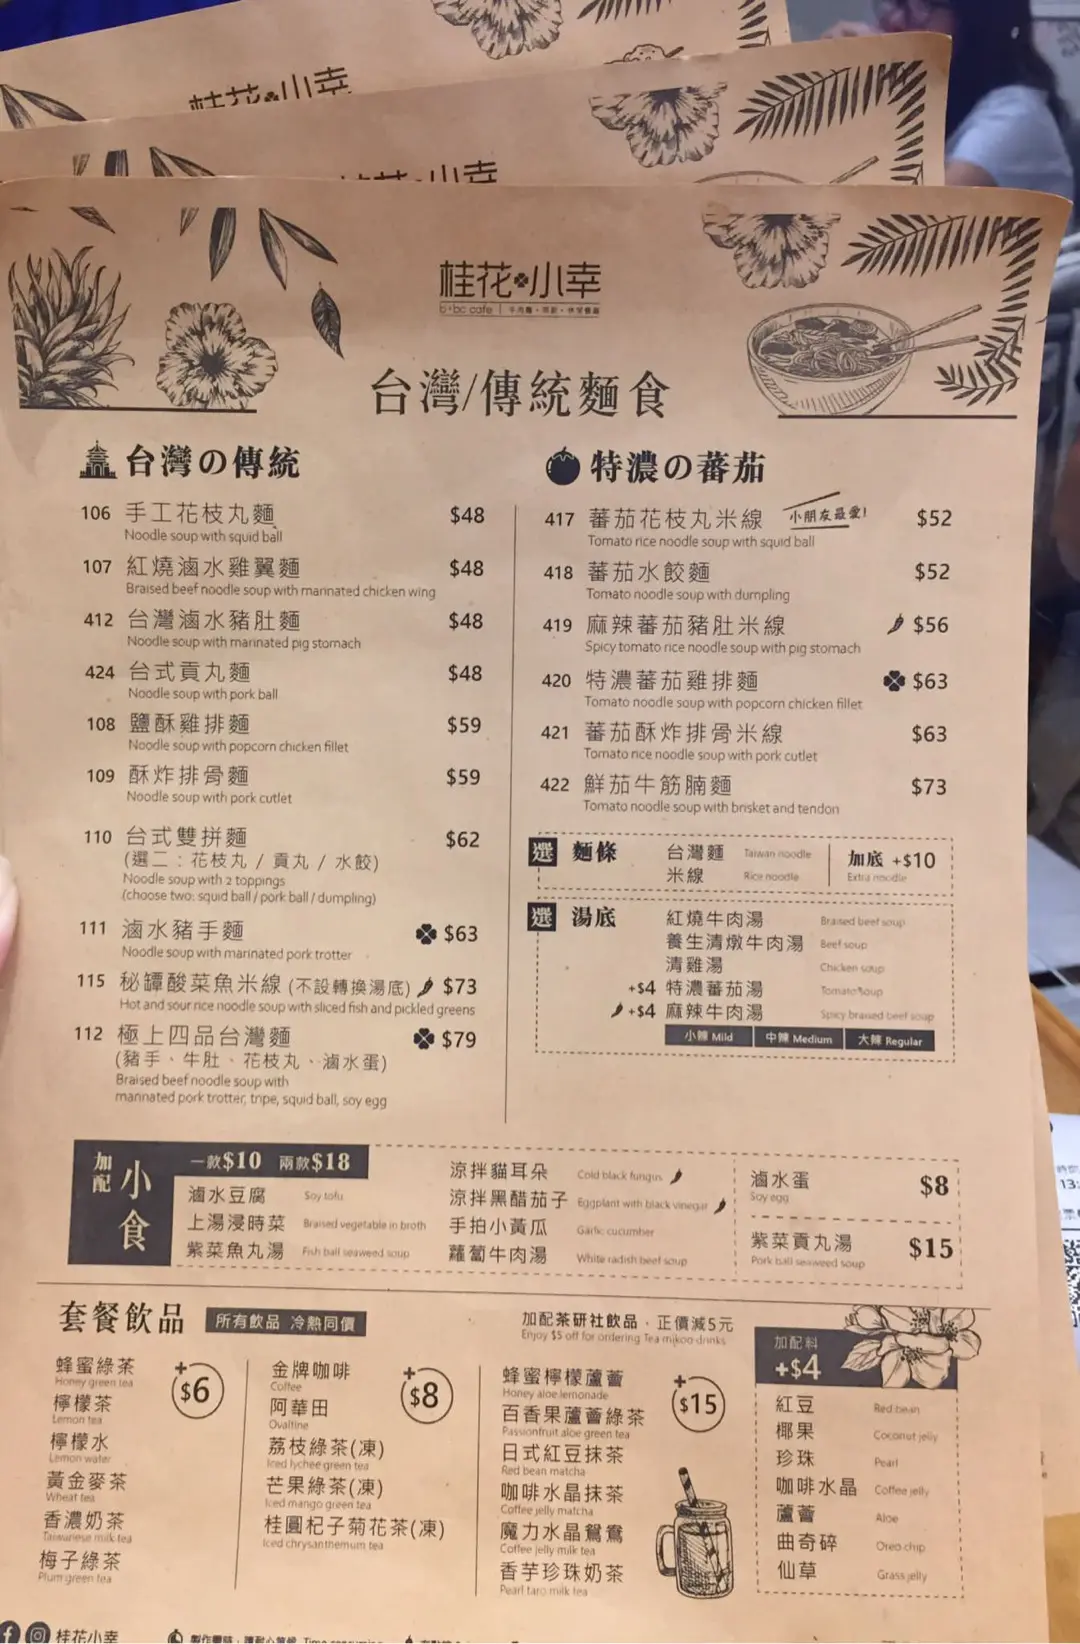 桂花小幸
桂花小幸
桂花小幸
b+bc cafe
台灣/傳統麵食
台灣の傳統
106 手工花枝丸麵 $48
Noodle soup with squid ball
107 紅燒滷水雞翼麵 $48
Braised beef noodle soup with marinated chicken wing
412 台灣滷水豬肚麵 $48
Noodle soup with marinated pig stomach
424 台式貢丸麵 $48
Noodle soup with pork ball
108 鹽酥雞排麵 $59
Noodle soup with popcorn chicken fillet
109 酥炸排骨麵 $59
Noodle soup with pork cutlet
110 台式雙拼麵 $62
(選二：花枝丸 / 貢丸 / 水餃)
Noodle soup with 2 toppings
(choose two: squid ball / pork ball / dumpling)
111 滷水豬手麵 $63
Noodle soup with marinated pork trotter
115 秘罈酸菜魚米線 (不設轉換湯底) $73
Hot and sour rice noodle soup with sliced fish and pickled greens
112 極上四品台灣麵 $79
(豬手、牛肚、花枝丸、滷水蛋)
Braised beef noodle soup with
marinated pork trotter, tripe, squid ball, soy egg
特濃の蕃茄
417 蕃茄花枝丸米線 小朋友最愛! $52
Tomato rice noodle soup with squid ball
418 蕃茄水餃麵 $52
Tomato noodle soup with dumpling
419 麻辣蕃茄豬肚米線 $56
Spicy tomato rice noodle soup with pig stomach
420 特濃蕃茄雞排麵 $63
Tomato noodle soup with popcorn chicken fillet
421 蕃茄酥炸排骨米線 $63
Tomato rice noodle soup with pork cutlet
422 鮮茄牛筋腩麵 $73
Tomato noodle soup with brisket and tendon
選 麵條
台灣麵 Taiwan noodle
米線 Rice noodle
加底 +$10
Extra noodle
選 湯底
紅燒牛肉湯 Braised beef soup
養生清燉牛肉湯 Beef soup
清雞湯 Chicken soup
+$4 特濃蕃茄湯 Tomato soup
+$4 麻辣牛肉湯 Spicy braised beef soup
小辣 Mild 中辣 Medium 大辣 Regular
加配 小食
一款$10 兩款$18
滷水豆腐 Soy tofu
上湯浸時菜 Braised vegetable in broth
紫菜魚丸湯 Fish ball seaweed soup
涼拌貓耳朵 Cold black fungus
涼拌黑醋茄子 Eggplant with black vinegar
手拍小黃瓜 Garlic cucumber
蘿蔔牛肉湯 White radish beef soup
滷水蛋 $8
Soy egg
紫菜貢丸湯 $15
Pork ball seaweed soup
套餐飲品 所有飲品 冷熱同價
加配茶研社飲品，正價減5元
Enjoy $5 off for ordering Tea mikoo drinks
+$6
蜂蜜綠茶
Honey green tea
檸檬茶
Lemon tea
檸檬水
Lemon water
黃金麥茶
Wheat tea
香濃奶茶
Taiwanese milk tea
梅子綠茶
Plum green tea
+$8
金牌咖啡
Coffee
阿華田
Ovaltine
荔枝綠茶(凍)
Iced lychee green tea
芒果綠茶(凍)
Iced mango green tea
桂圓杞子菊花茶(凍)
Iced chrysanthemum tea
+$15
蜂蜜檸檬蘆薈
Honey aloe lemonade
百香果蘆薈綠茶
Passionfruit aloe green tea
日式紅豆抹茶
Red bean matcha
咖啡水晶抹茶
Coffee jelly matcha
魔力水晶鴛鴦
Coffee jelly milk tea
香芋珍珠奶茶
Pearl taro milk tea
加配料
+$4
紅豆 Red bean
椰果 Coconut jelly
珍珠 Pearl
咖啡水晶 Coffee jelly
蘆薈 Aloe
曲奇碎 Oreo chip
仙草 Grass jelly
桂花小幸